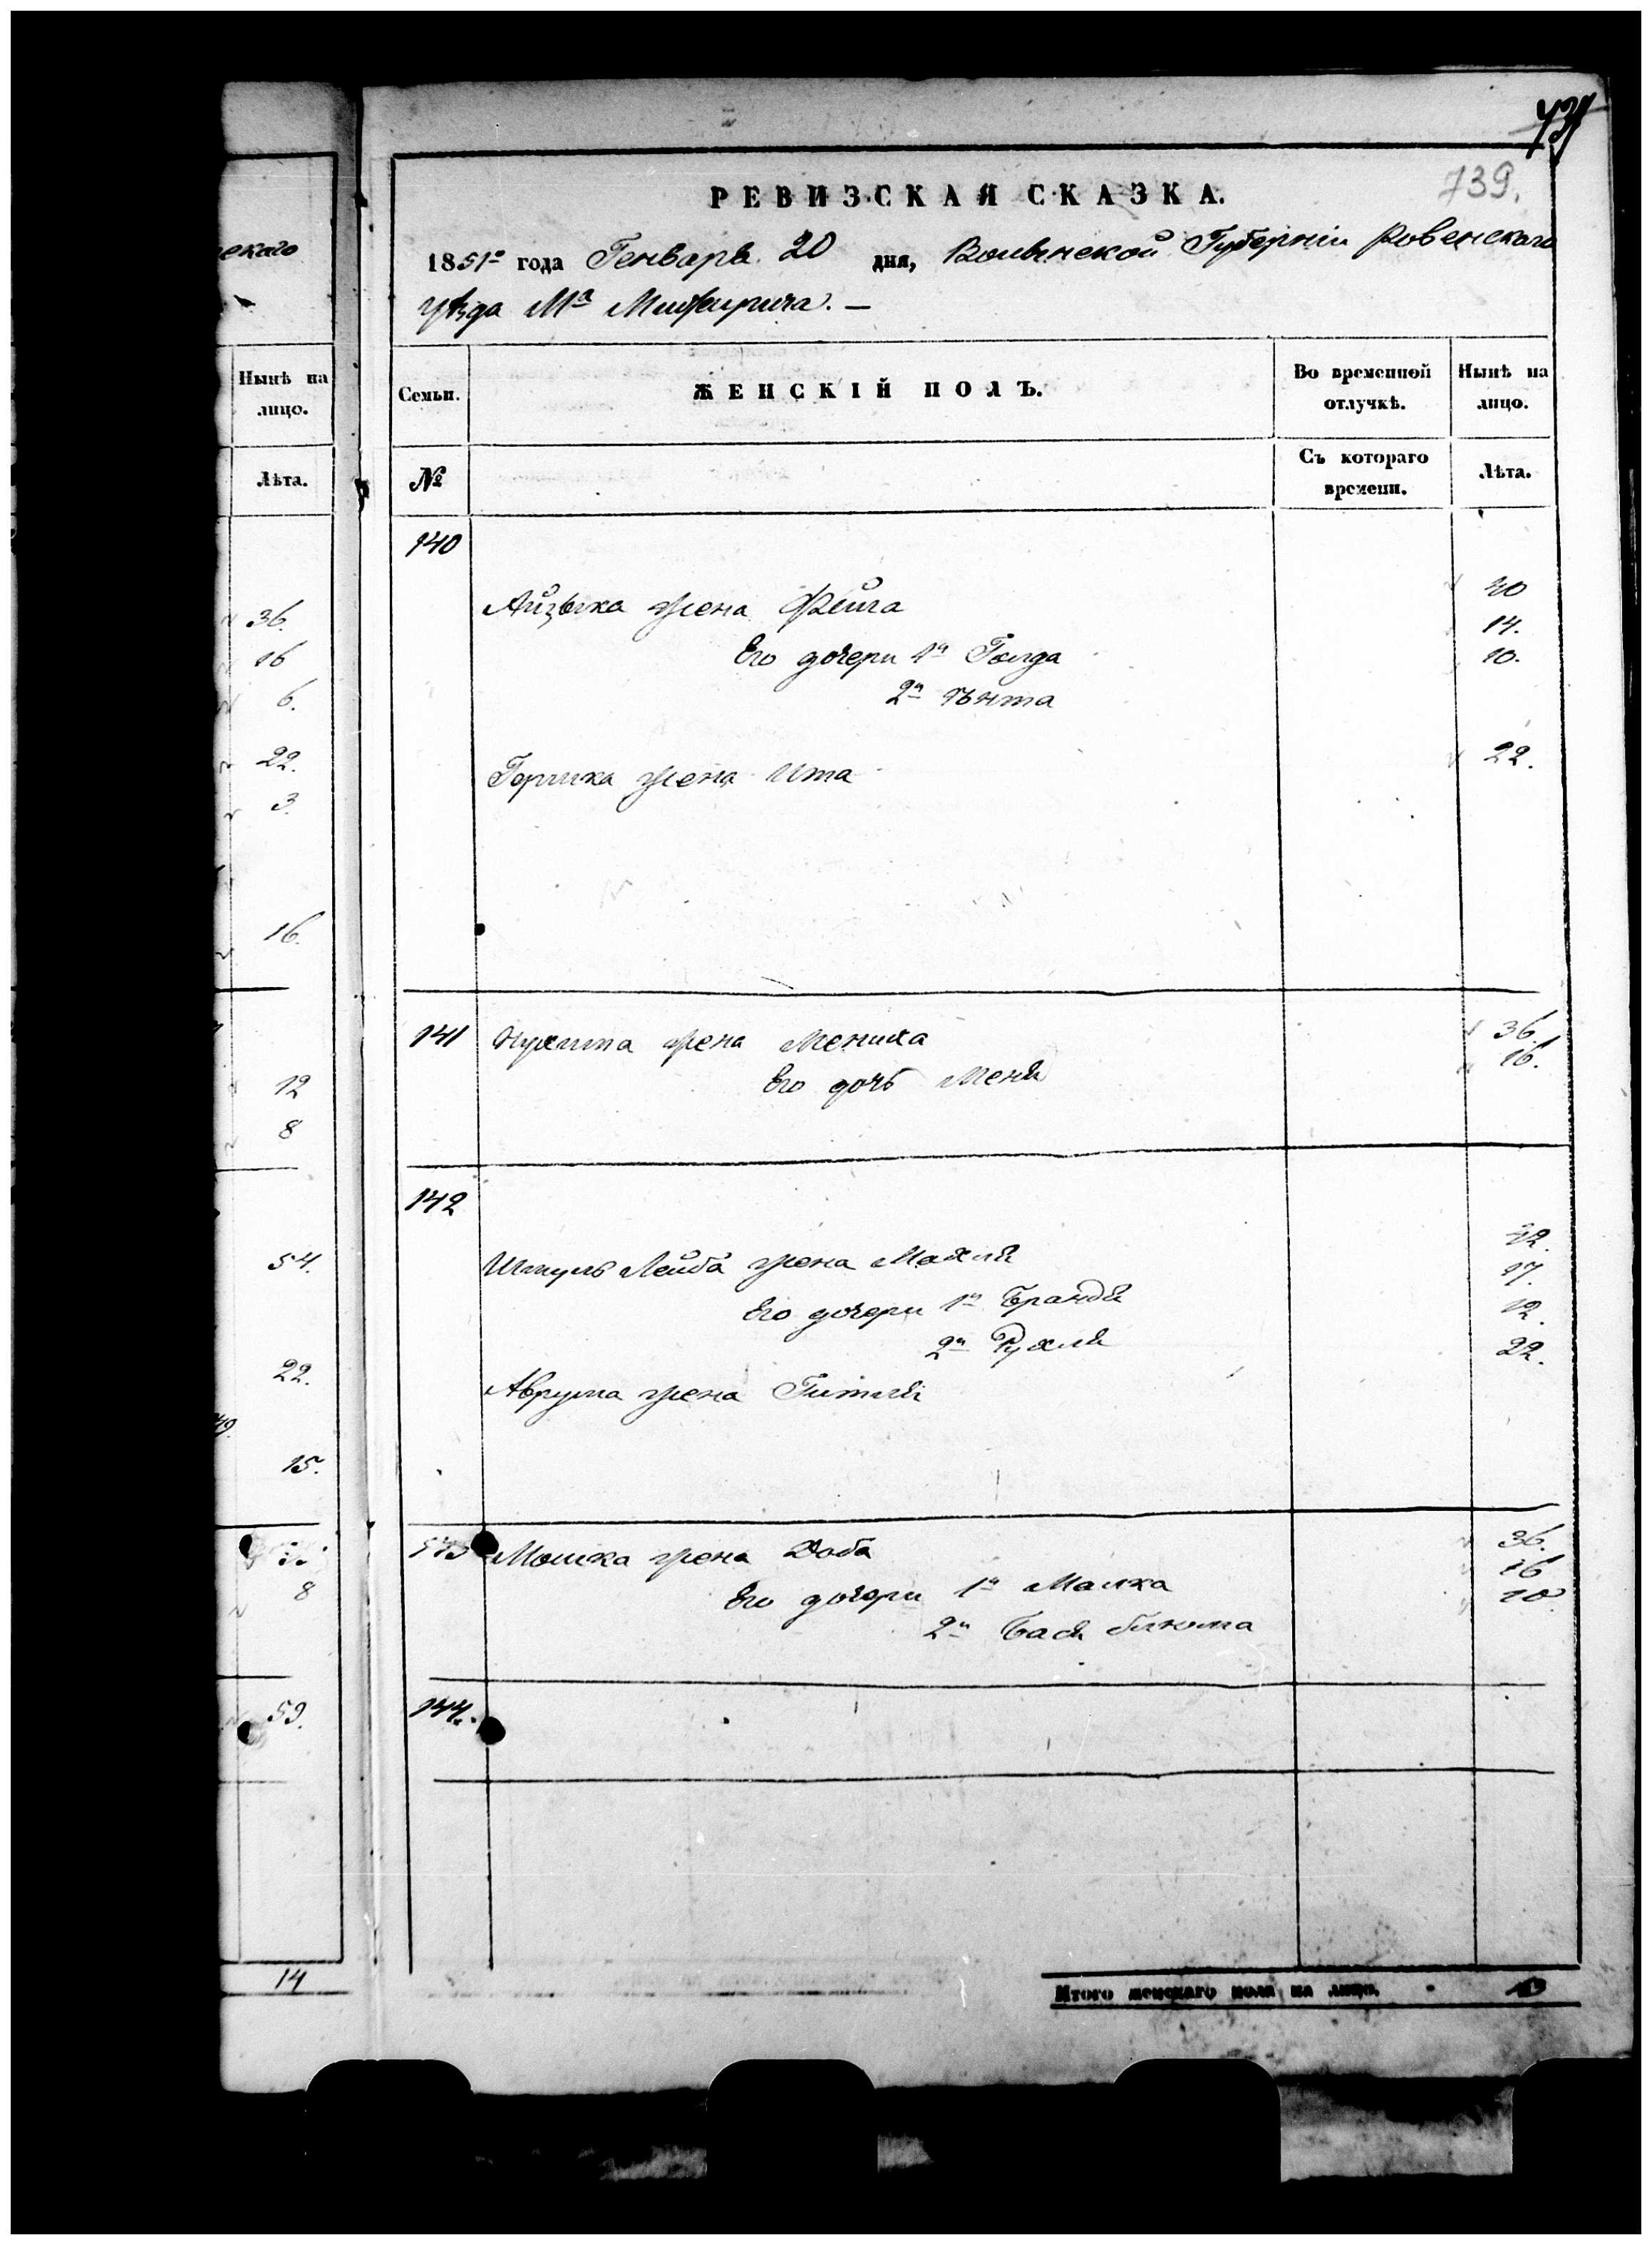 екаго
Нынѣ на
лицо.
Лѣта.
36.
16
6.
22.
3.
16.
12
8
54.
22.
49.
15.
8
59.
14
739.
РЕВИЗСКАЯ СКАЗКА.
1851го года Генваря 20 дня, Волынской Губерніи Ровенскаго
уѣзда Ма Межирича. —
Семьи. ЖЕНСКІЙ ПОЛЪ. Во временной отлучкѣ. Нынѣ на лицо.
№ Съ котораго времени. Лѣта.
140
Айзыка жена Фейга 40
Его дочери 1я Голда 14.
2я Ента 10.
Гершка жена Ита 22.
141 жена Мениха 36.
Его дочь Меня 16.
142
Шмуль Лейба жена Махля 42.
Его дочери 1я Брандя 17.
2я Рухля 12.
Аврума жена Гитля 22.
143 Мошка жена Доба 36.
Его дочери 1я Малка 16
2я Бася Блюма 10
144.
Итого женскаго пола на лицо. 13